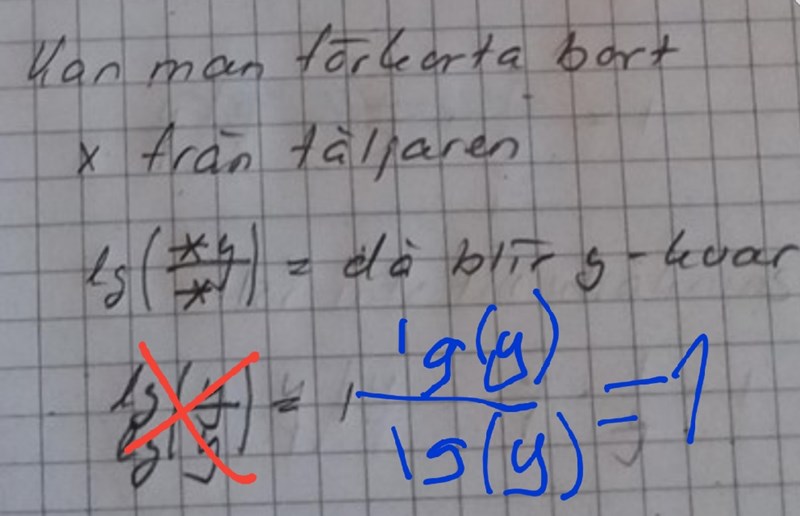 Kan man förkorta bort
x från täljaren
lg(xy/x) = då blir y - kvar
lg(y/lg(y) = 1 lg(y)/lg(y) = 1